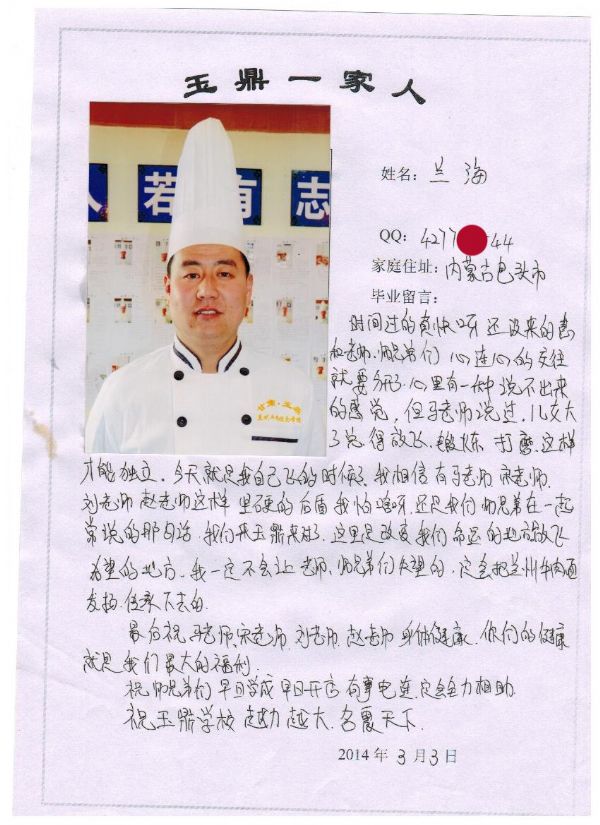 玉鼎一家人
人若有志
甘肃·玉鼎
姓名: 兰海
QQ: 4277 44
家庭住址: 内蒙古包头市
毕业留言:
时间过的真快呀还没来的急
和老师.师兄弟们 心连心的交往
就要分了.心里有一种说不出来
的感觉,但马老师说过,儿女大
了总得放飞.锻炼 打磨.这样
才能独立.今天就是我自己飞的时候了.我相信有马老师 宋老师.
刘老师 赵老师这样坚硬的后盾我怕啥呀.还是我们师兄弟在一起
常说的那句话.我们来玉鼎来对了.这里是改变我们命运的地方放飞
希望的地方.我一定不会让老师.师兄弟们失望的.一定会把兰州牛肉面
发扬.传承下去的.
最后祝马老师.宋老师.刘老师.赵老师身体健康.你们的健康
就是我们最大的福利.
祝师兄弟们早日学成早日开店 有事电连.一定全力相助.
祝玉鼎学校越办越大.名震天下.
2014年3月3日